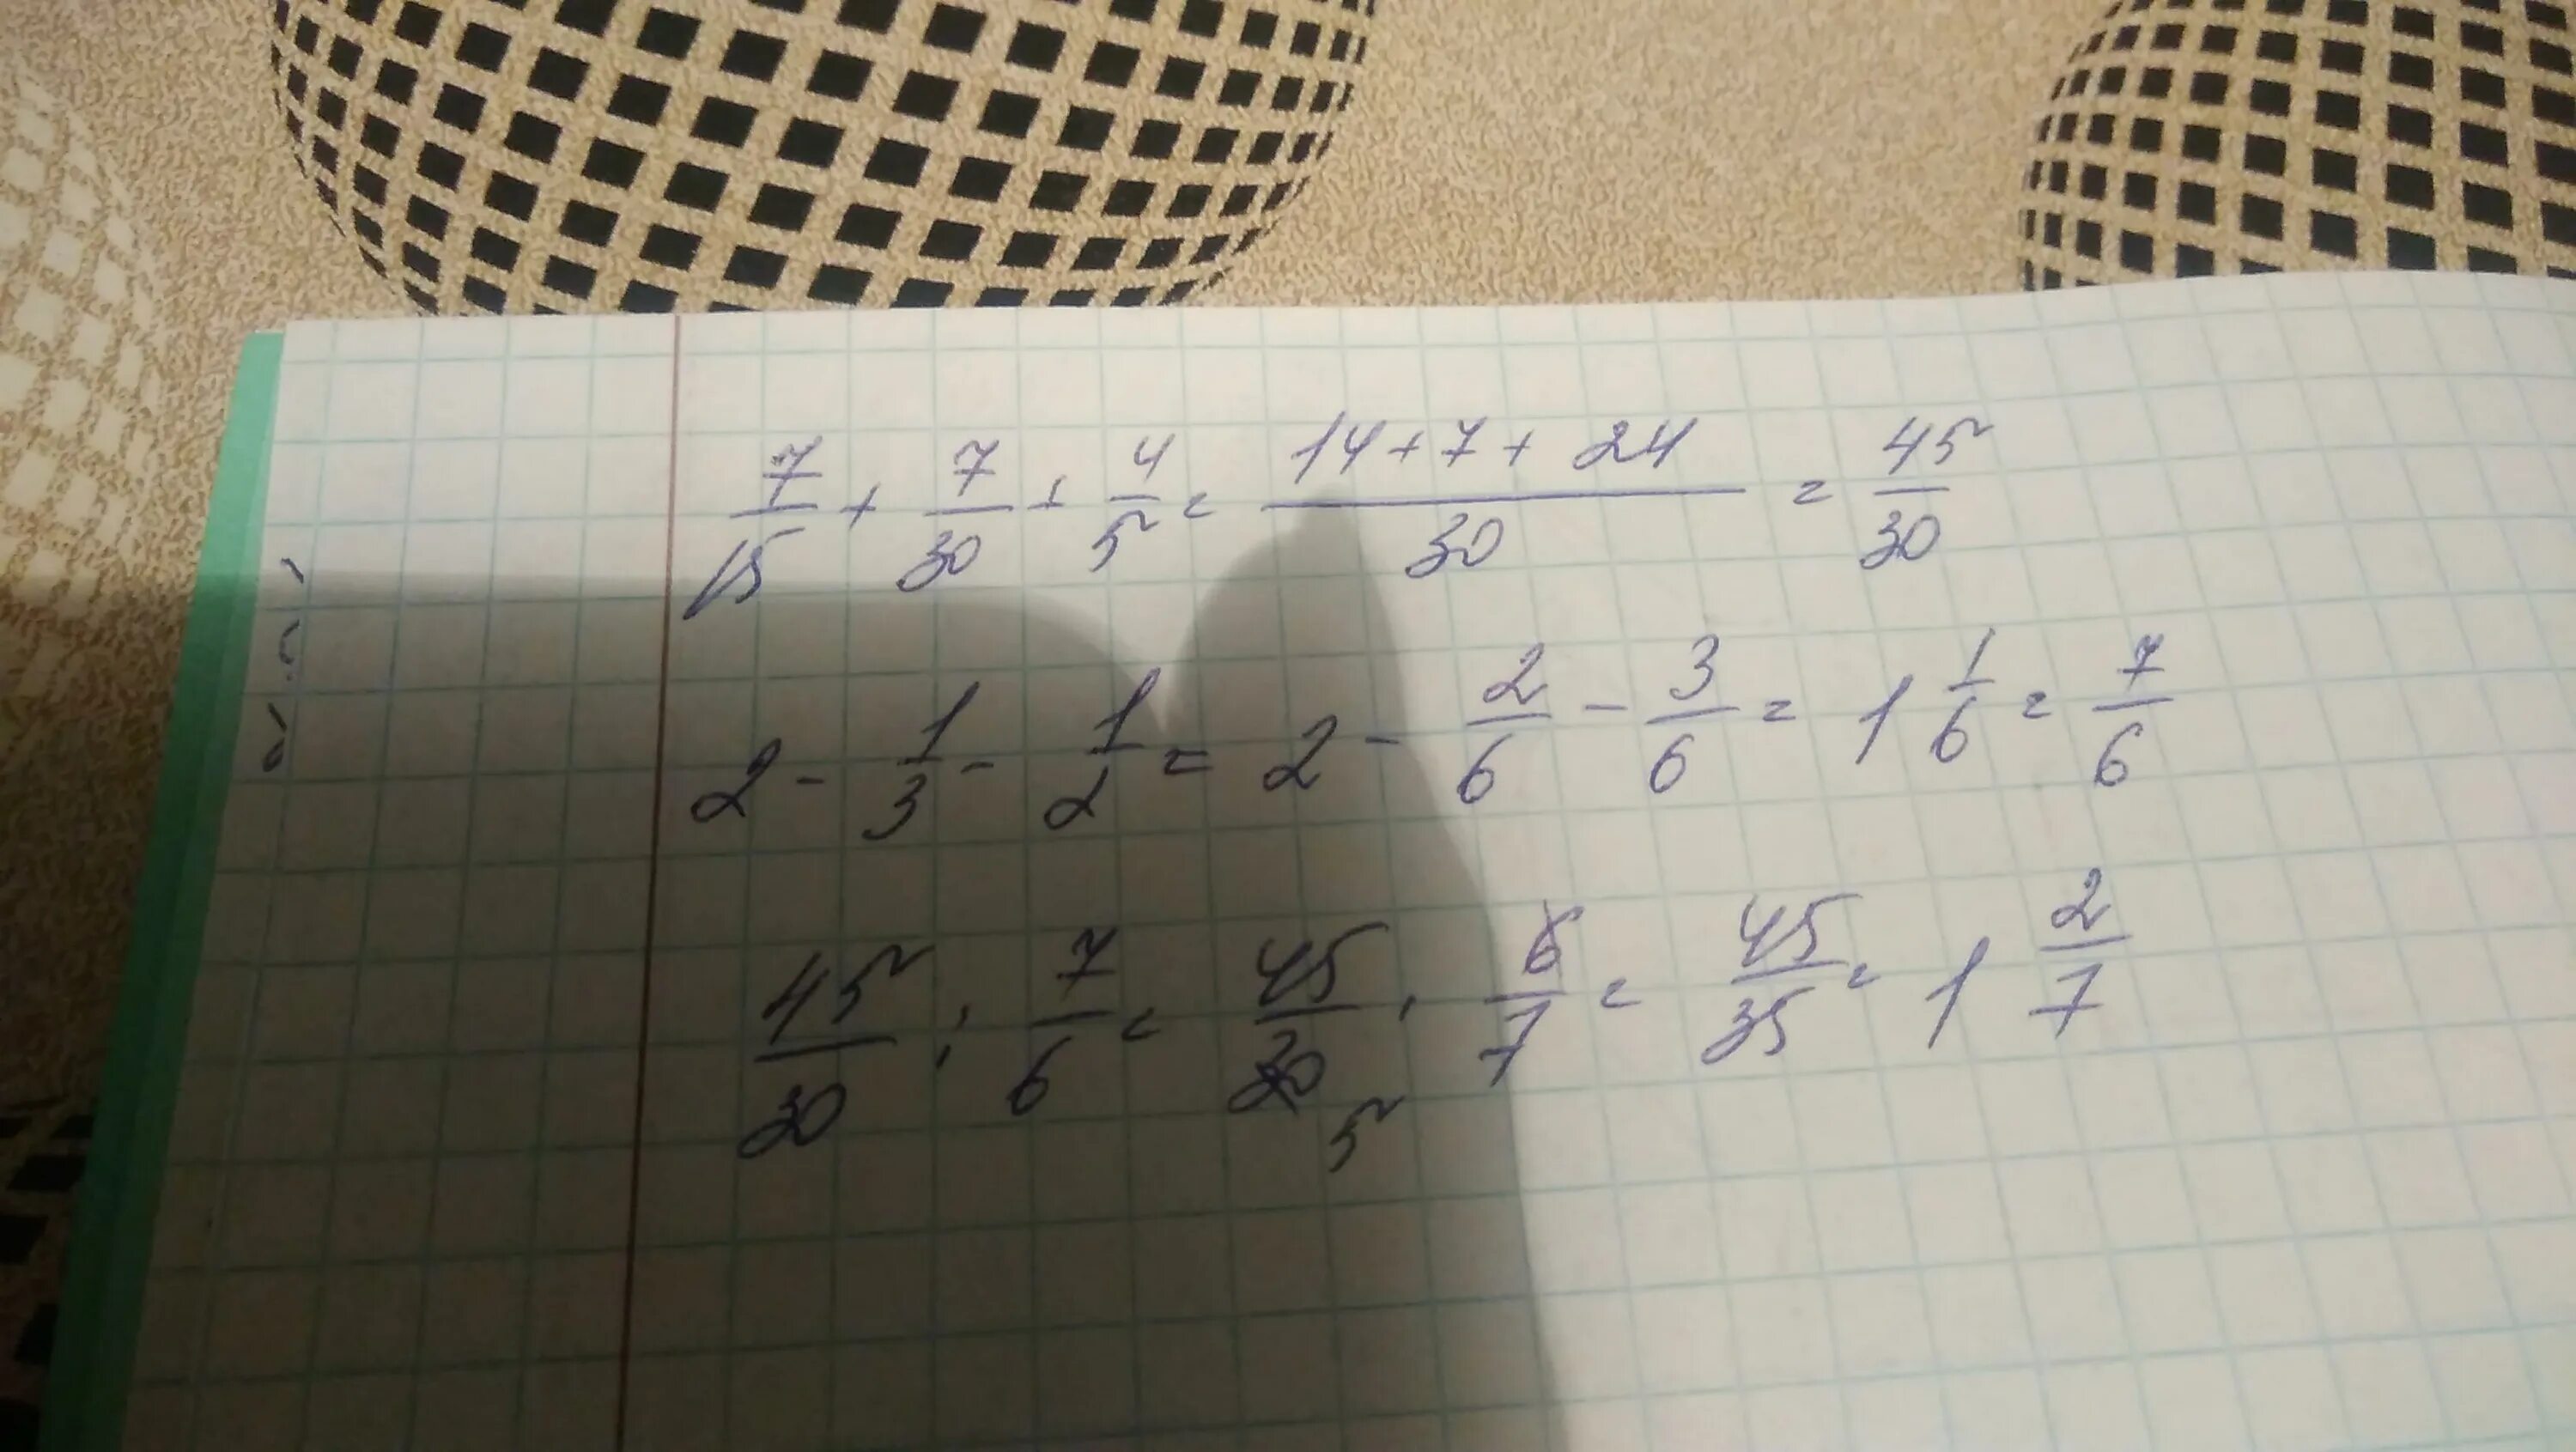 7/15 + 7/30 + 4/5 = (14+7+24)/30 = 45/30
2 - 1/3 - 1/2 = 2 - 2/6 - 3/6 = 1 1/6 = 7/6
45/30 : 7/6 = 45/30 · 6/7 = 45/35 = 1 2/7
5